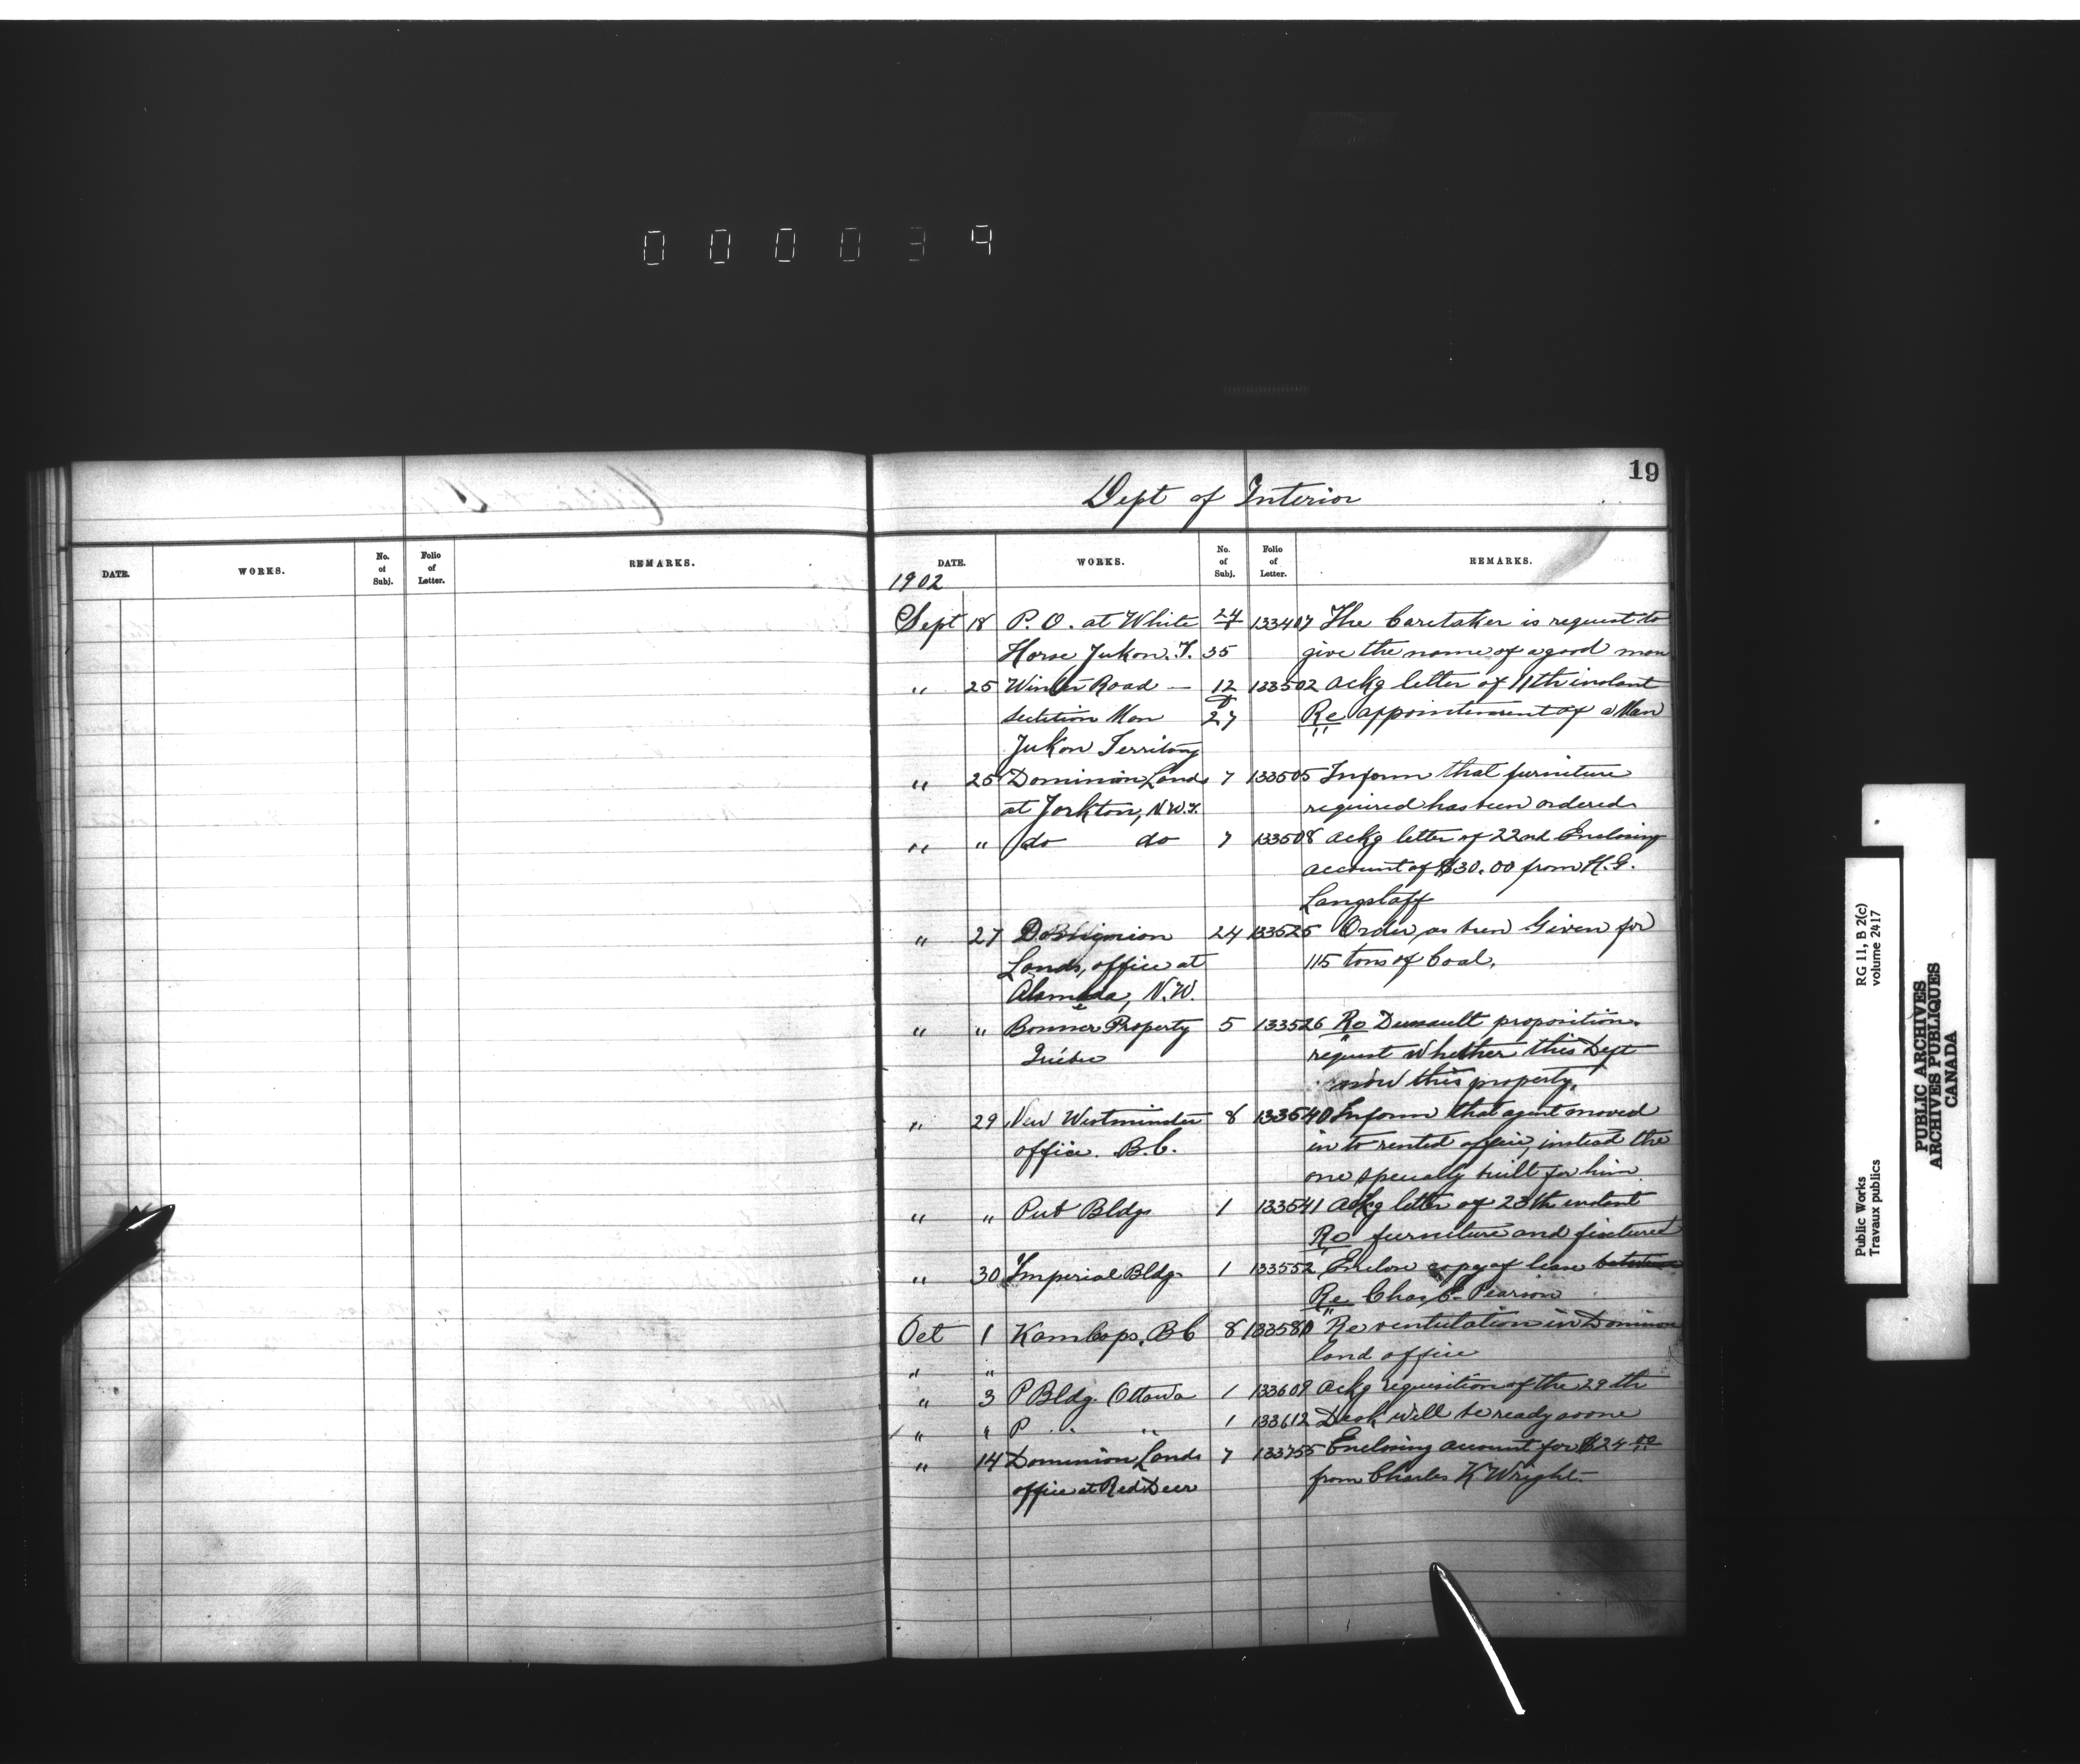 0 0 0 0 3 9
19
Dept of Interior
DATE. WORKS. No. of Subj. Folio of Letter. REMARKS.
DATE. WORKS. No. of Subj. Folio of Letter. REMARKS.
1902
Sept 18 P. O. at White 24 133407 The Caretaker is request to
Horse Yukon. T. 35 give the name of a good man
" 25 Winter Road — 12 133502 Ackg letter of 11th instant
Man 27 Re appointement of a Man
Yukon Territory
" 25 Dominion Lands 7 133505 Inform that furniture
at Yorkton, N.W.T. required has been ordered
" " do do 7 133508 Ackg letter of 22nd Enclosing
account of $30.00 from H. G.
Langstaff
" 27 Dominion 24 133525 Order as been Given for
Lands, office at 115 tons of Coal.
Alameda, N.W.
" " Bonner Property 5 133526 Re proposition.
Québec request whether this Dept
this property.
" 29 New Westminster 8 133540 Inform that agent moved
office. B.C. in to rented office, instead the
one specially built for him
" " Pub Bldgs 1 133541 Ackg letter of 28th instant
Re furniture and fixtures
" 30 Imperial Bldg. 1 133552 Enclose copy of lease
Re Chas C. Pearson
Oct 1 Kamloops, BC 8 133580 Re ventilation in Dominion
" " land office
" 3 P Bldg. Ottawa 1 133609 Ackg requisition of the 29th
" " P " " 1 133612 Desk will be ready soone
" 14 Dominion Lands 7 133755 Enclosing account for $24.00
office at Red Deer from Charles K Wright
Public Works
Travaux publics
RG 11, B 2(c)
volume 2417
PUBLIC ARCHIVES
ARCHIVES PUBLIQUES
CANADA